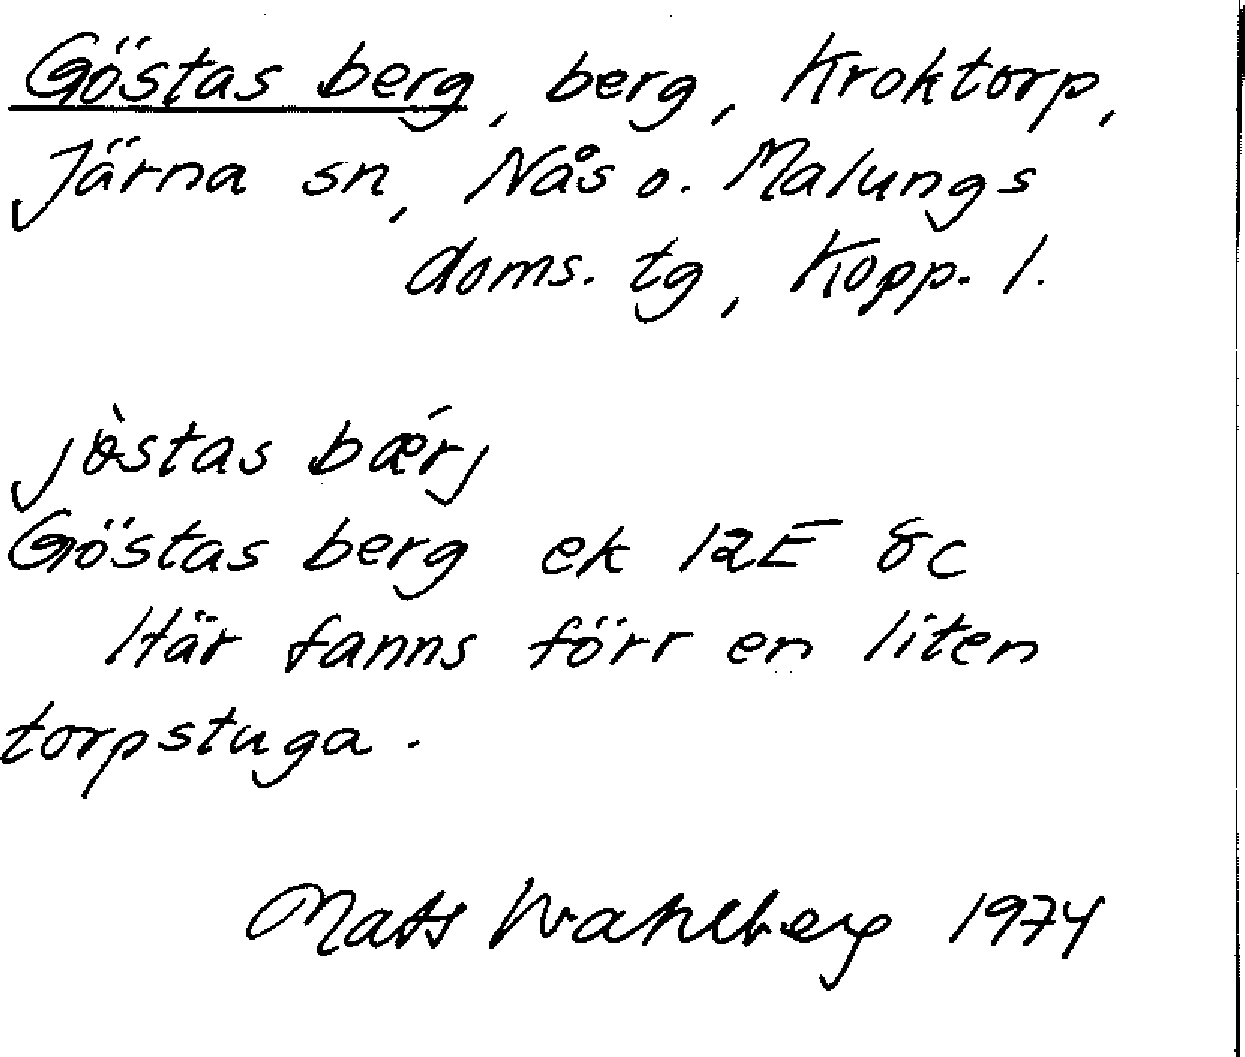 Göstas berg, berg, Kroktorp,
Järna sn, Nås o. Malungs
doms. tg, Kopp. l.
jòstas bǽrj
Göstas berg ek 12E 8c
Här fanns förr en liten
torpstuga.
Mats Wahlberg 1974